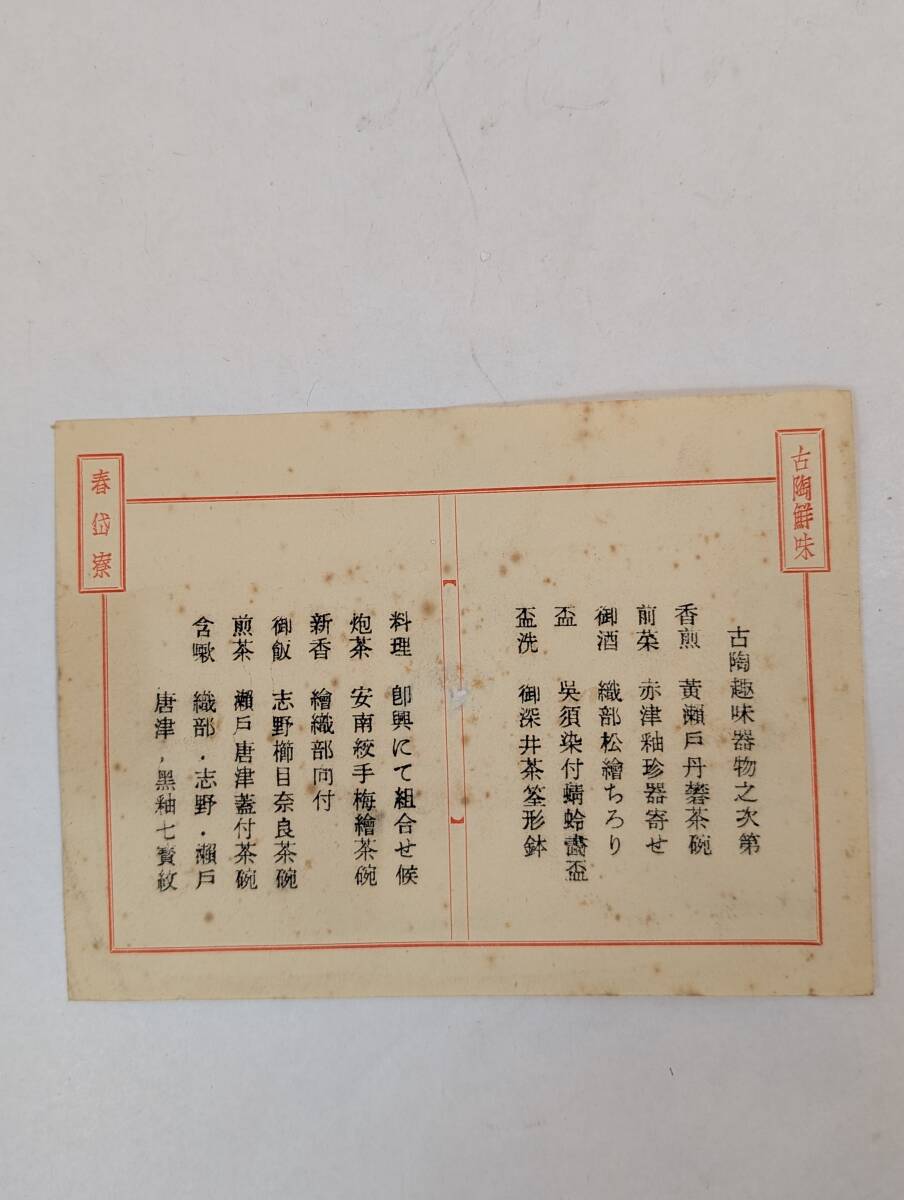 古陶鮮味
古陶趣味器物之次第
香煎 黃瀨戶丹礬茶碗
前菜 赤津釉珍器寄せ
御酒 織部松繪ちろり
盃 吳須染付蜻蛉畵盃
盃洗 御深井茶筌形鉢
料理 卽興にて組合せ候
炮茶 安南絞手梅繪茶碗
新香 繪織部向付
御飯 志野櫛目奈良茶碗
煎茶 瀨戶唐津蓋付茶碗
含嗽 織部・志野・瀨戶
唐津，黑釉七寶紋
春岱寮